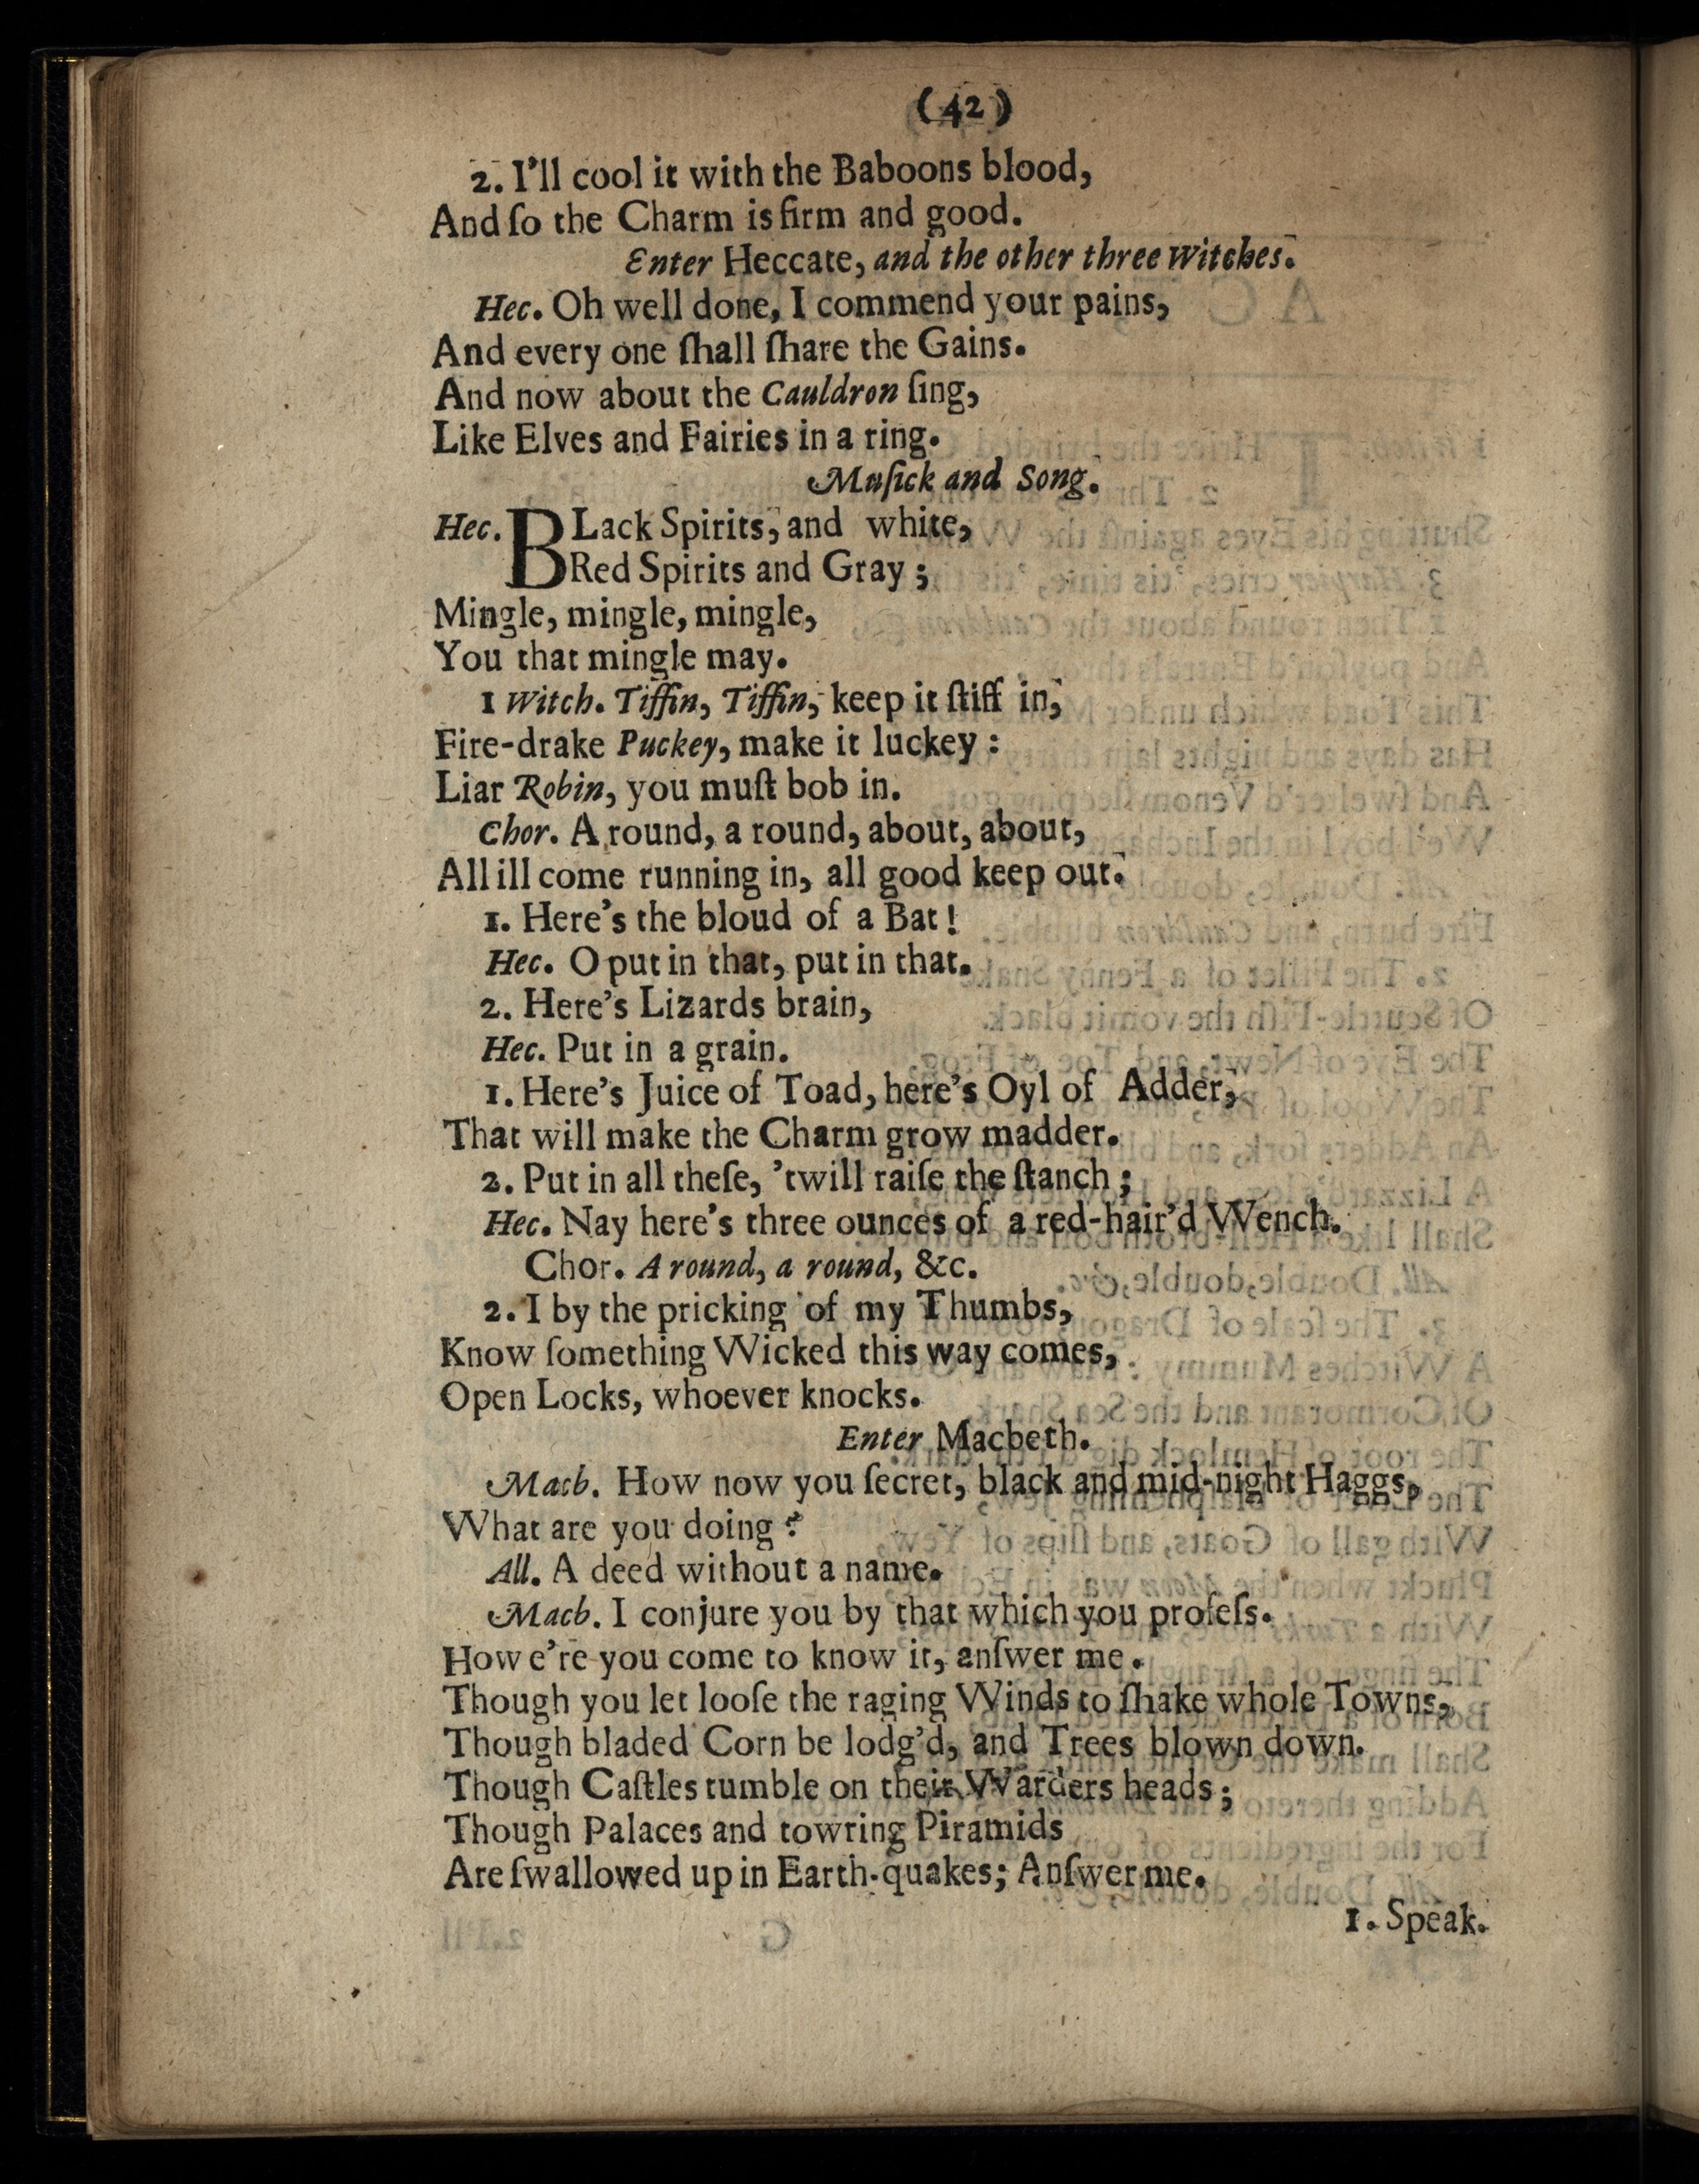 (42)
2. I'll cool it with the Baboons blood,
And ſo the Charm is firm and good.
Enter Heccate, and the other three Witches.
Hec. Oh well done, I commend your pains,
And every one ſhall ſhare the Gains.
And now about the Cauldron ſing,
Like Elves and Fairies in a ring.
Muſick and Song.
Hec. BLack Spirits, and white,
Red Spirits and Gray;
Mingle, mingle, mingle,
You that mingle may.
1 Witch. Tiffin, Tiffin, keep it ſtiff in,
Fire-drake Puckey, make it luckey:
Liar Robin, you muſt bob in.
Chor. A round, a round, about, about,
All ill come running in, all good keep out.
1. Here's the bloud of a Bat!
Hec. O put in that, put in that.
2. Here's Lizards brain,
Hec. Put in a grain.
1. Here's Juice of Toad, here's Oyl of Adder,
That will make the Charm grow madder.
2. Put in all theſe, 'twill raiſe the ſtanch;
Hec. Nay here's three ounces of a red-hair'd Wench.
Chor. A round, a round, &c.
2. I by the pricking of my Thumbs,
Know ſomething Wicked this way comes,
Open Locks, whoever knocks.
Enter Macbeth.
Macb. How now you ſecret, black and mid-night Haggs,
What are you doing?
All. A deed without a name.
Macb. I conjure you by that which you profeſs.
How e're you come to know it, anſwer me.
Though you let looſe the raging Winds to ſhake whole Towns,
Though bladed Corn be lodg'd, and Trees blown down.
Though Caſtles tumble on their Warders heads;
Though Palaces and towring Piramids
Are ſwallowed up in Earth-quakes; Anſwer me.
1. Speak.